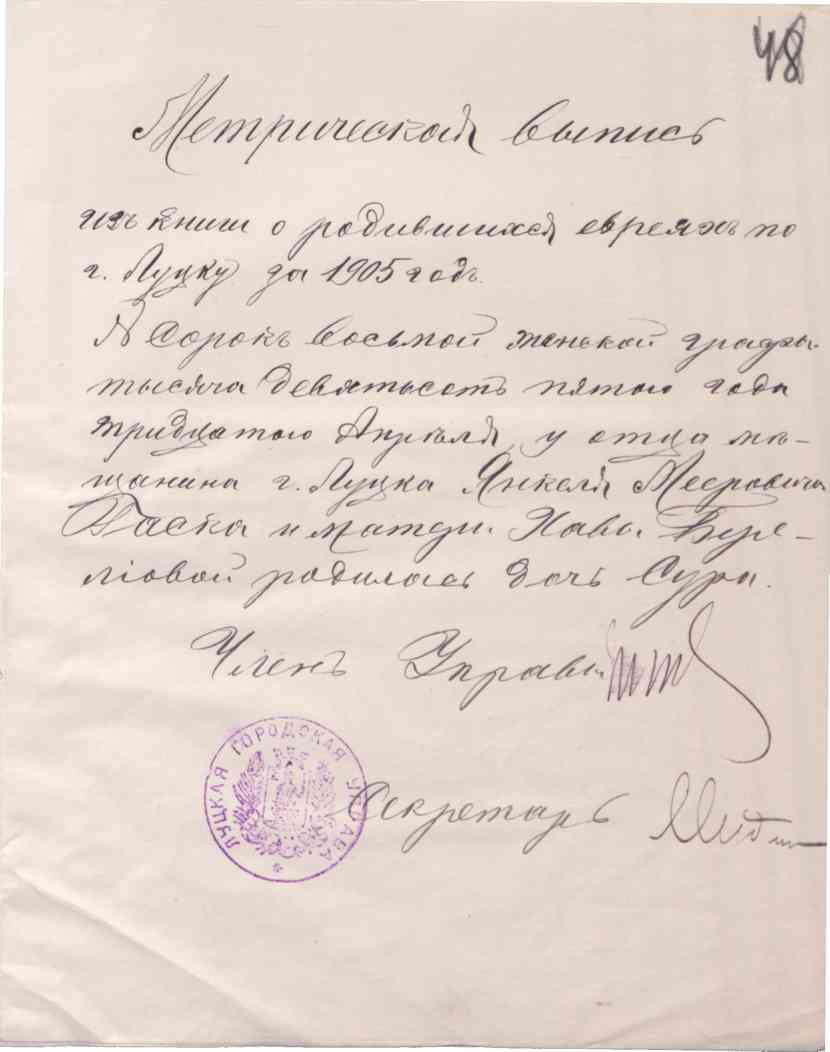 48
Метрическая выпись
изъ книги о родившихся евреяхъ по
г. Луцку за 1905 годъ.
№ Сорокъ восьмой женской графы.
тысяча девятьсотъ пятаго года
тридцатаго Апрѣля, у отца мѣ-
щанина г. Луцка Янкеля Мееровича
Гаска и матери Хавы Бере-
ліовой родилась дочь Сура.
Членъ Управы
ЛУЦКАЯ ГОРОДСКАЯ УПРАВА
Секретарь